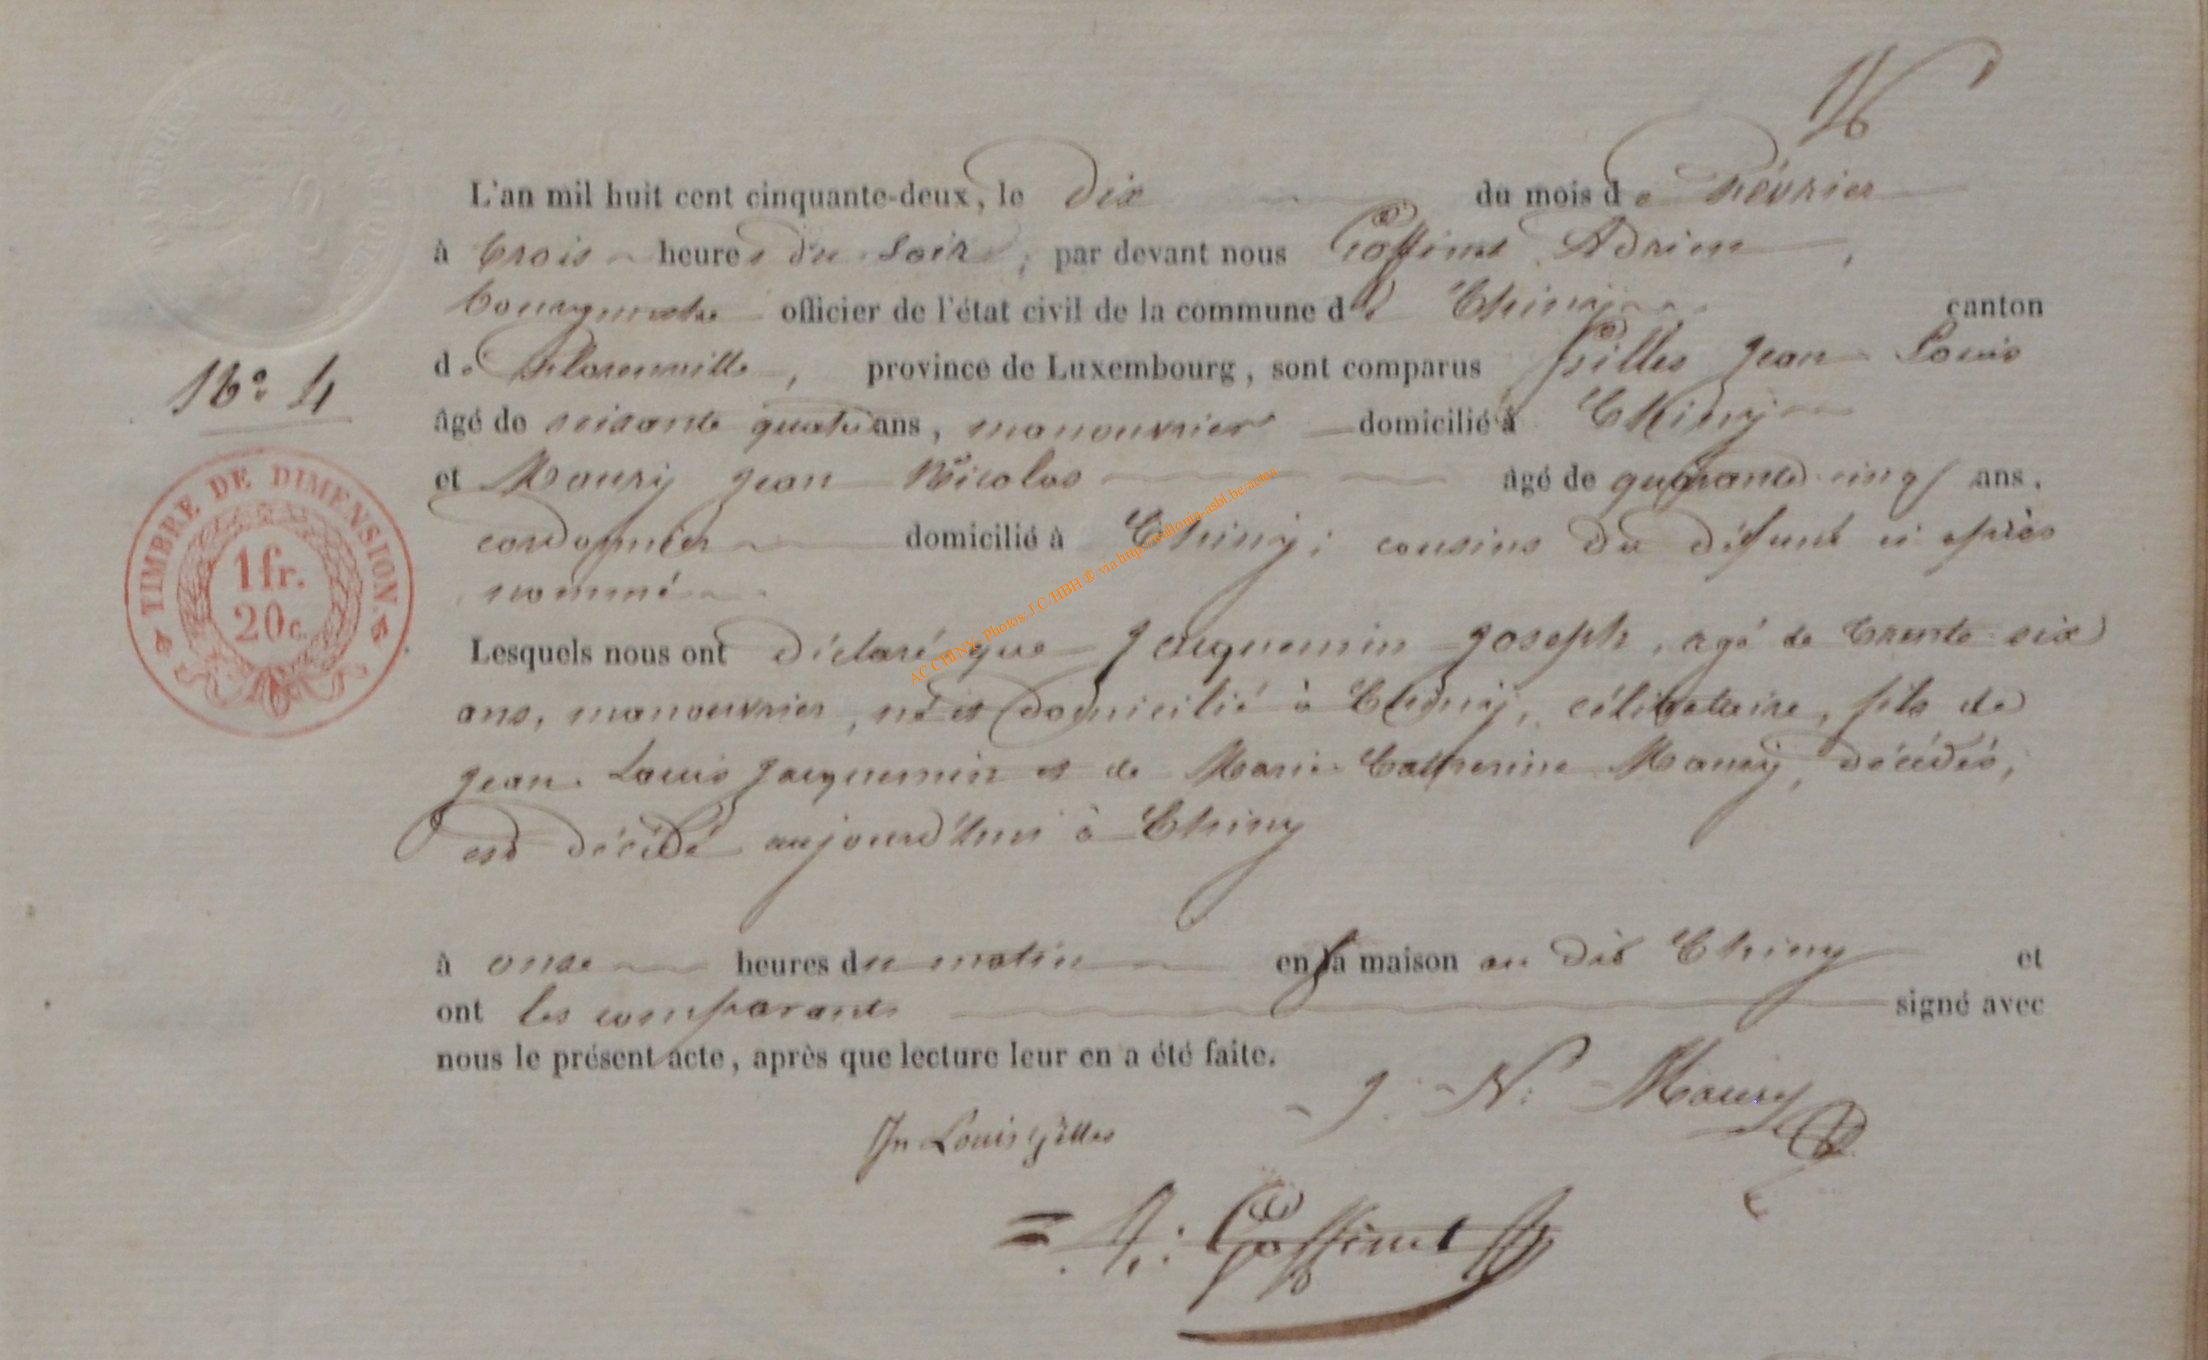 L'an mil huit cent cinquante-deux, le dix du mois de Février
à trois heures du soir, par devant nous Goffinet Adrien,
bourgmestre officier de l'état civil de la commune de Chiny canton
de Florenville, province de Luxembourg, sont comparus Gilles Jean Louis
âgé de soisante quatre ans, manouvrier domicilié à Chiny
et Maury Jean Nicolas âgé de quarante cinq ans,
cordonnier domicilié à Chiny; cousins du défunt ci après
nommé
N° 4
TIMBRE DE DIMENSION.
1 fr.
20 c.
Lesquels nous ont déclaré que Jacquemin Joseph, agé de trente six
ans, manouvrier, né et domicilié à Chiny, célibataire, fils de
Jean Louis Jacquemin et de Marie Catherine Maury, décédés,
est décédé aujourd'hui à Chiny
à onze heures du matin en sa maison au dit Chiny et
ont les comparants signé avec
nous le présent acte, après que lecture leur en a été faite.
J. N. Maury
Jn Louis Gilles
A: Goffinet